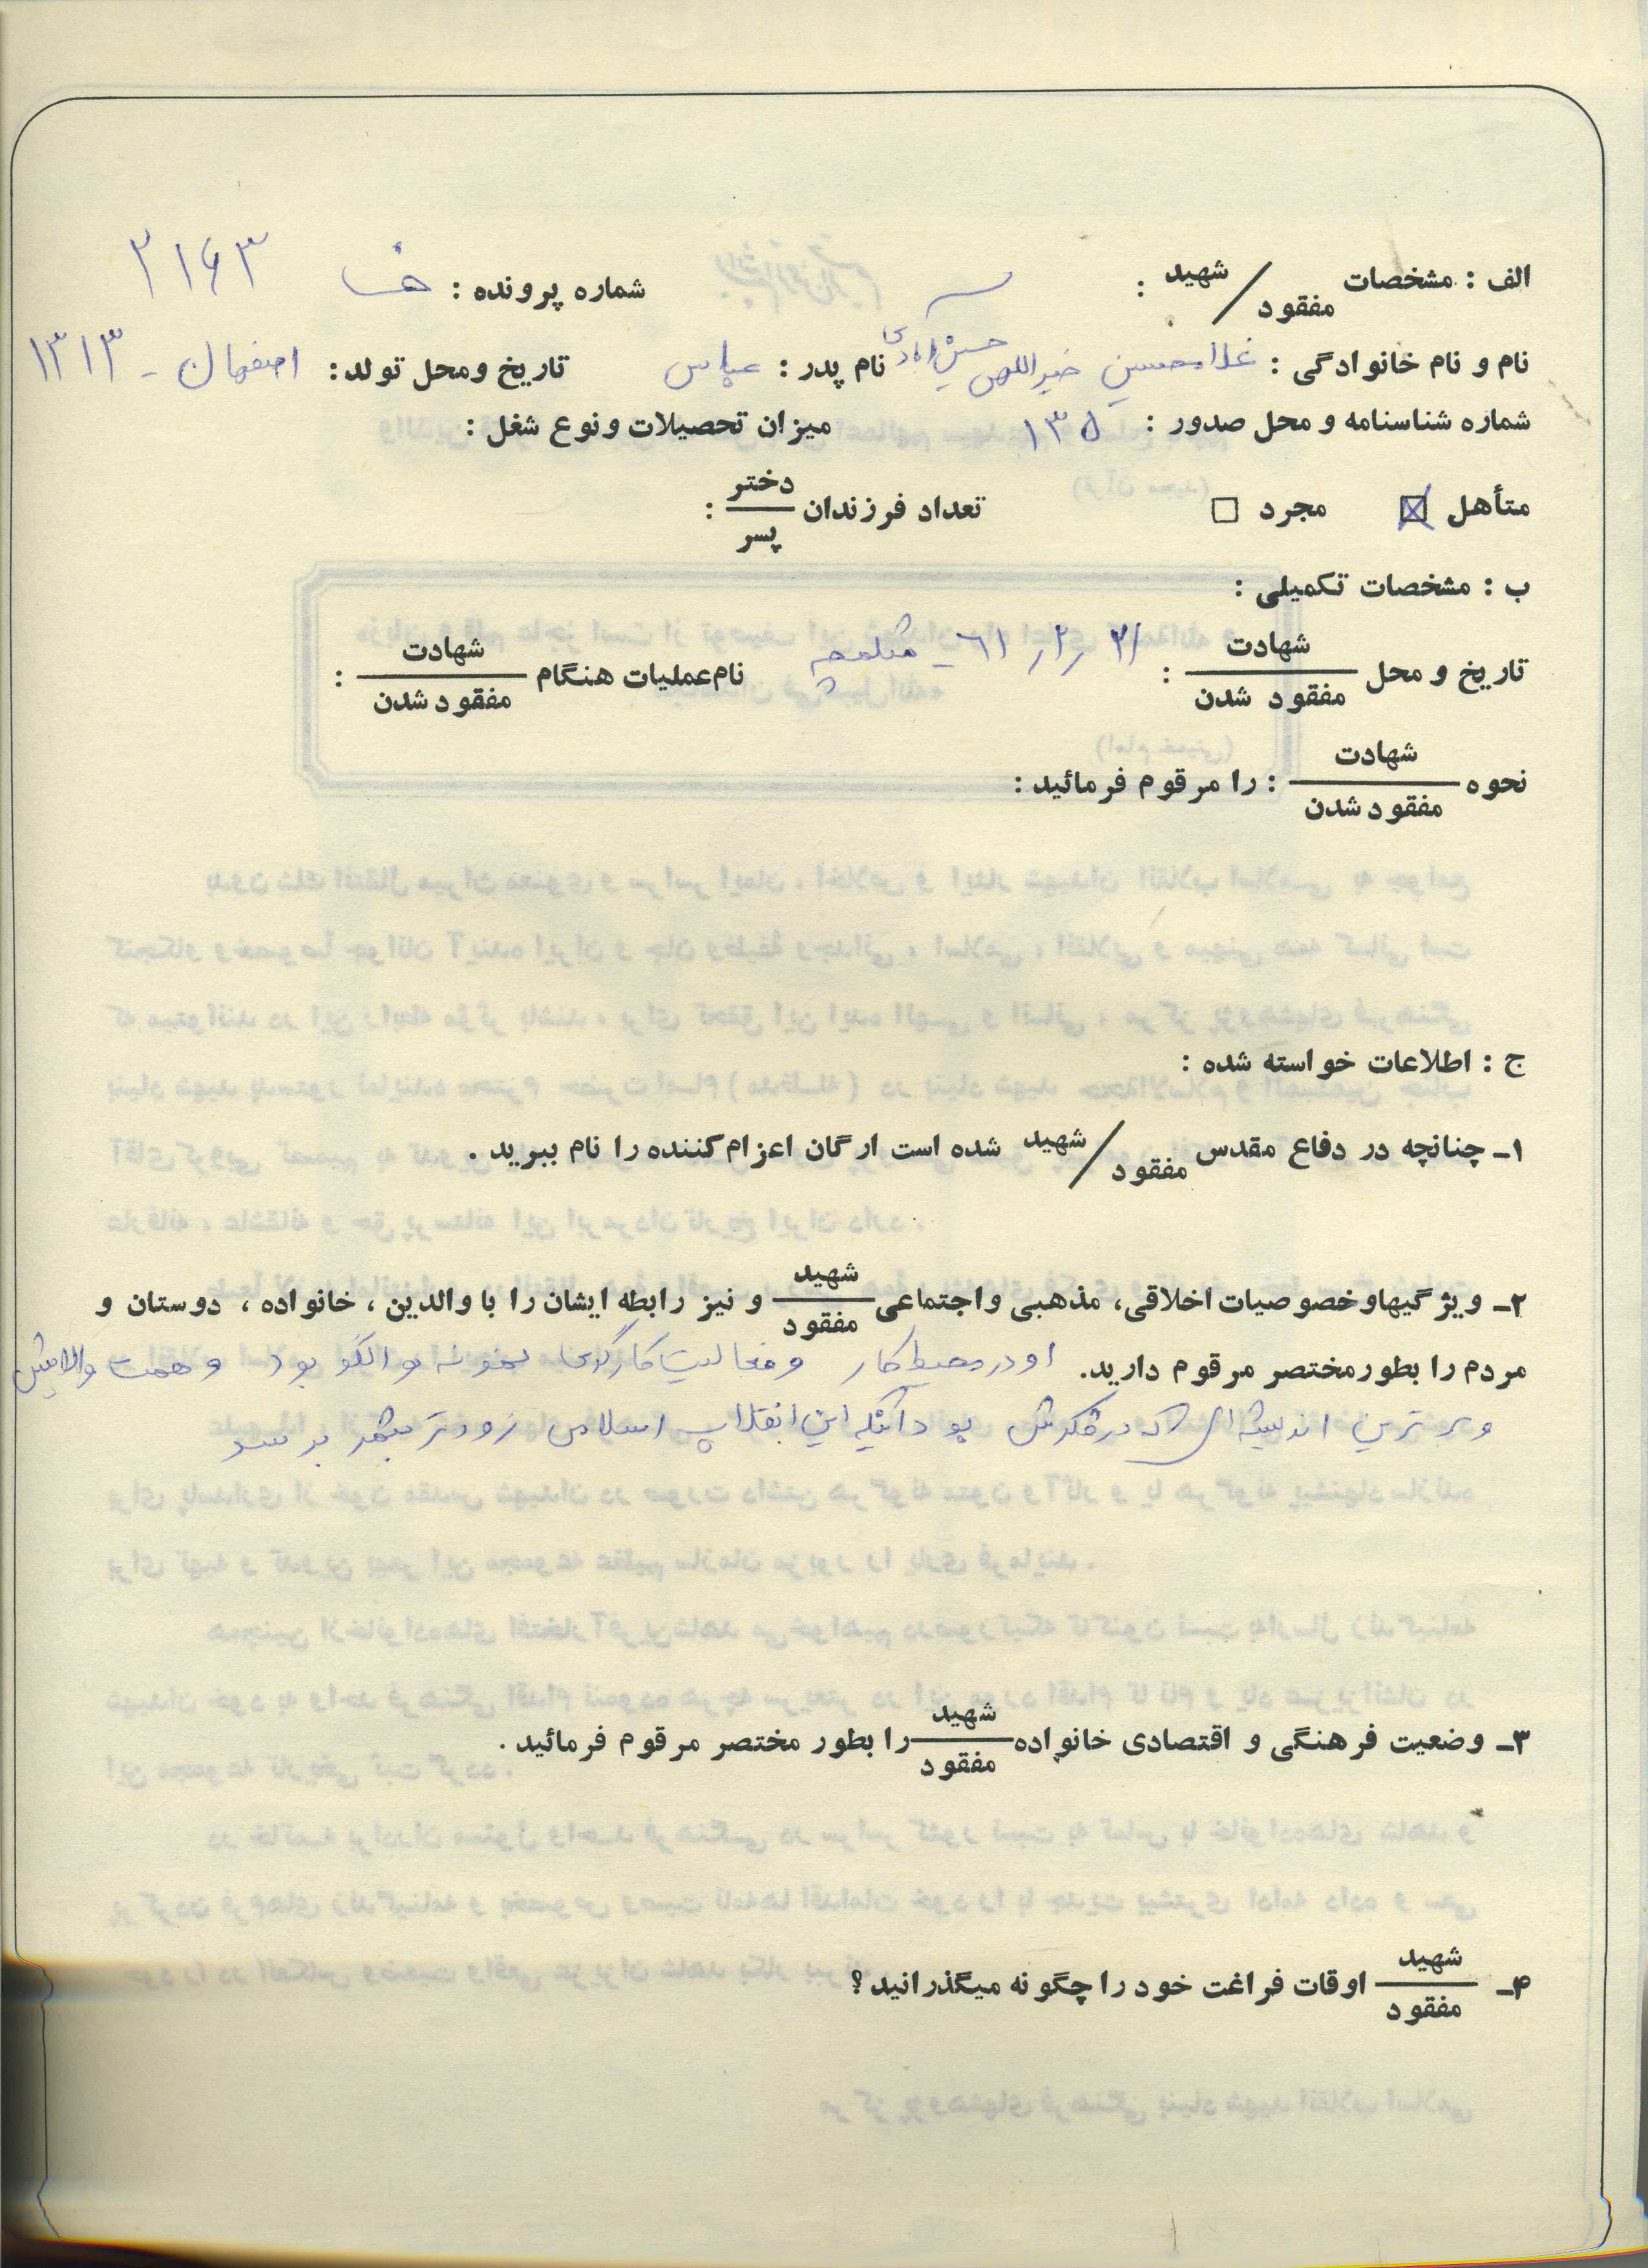 الف : مشخصات شهید / مفقود : شماره پرونده : خ ۲۱۶۳
نام و نام خانوادگی : غلامحسین خیراللهی حسین‌آبادی نام پدر : عباس تاریخ و محل تولد : اصفهان - ۱۳۱۳
شماره شناسنامه و محل صدور : ۱۳۵ میزان تحصیلات و نوع شغل :
متأهل ☒ مجرد □ تعداد فرزندان دختر / پسر :
ب : مشخصات تکمیلی :
تاریخ و محل شهادت / مفقود شدن : ۳۱ر۲ر۶۱ - شلمچه نام عملیات هنگام شهادت / مفقود شدن :
نحوه شهادت / مفقود شدن : را مرقوم فرمائید :
ج : اطلاعات خواسته شده :
۱ـ چنانچه در دفاع مقدس شهید / مفقود شده است ارگان اعزام کننده را نام ببرید .
۲ـ ویژگیها و خصوصیات اخلاقی، مذهبی و اجتماعی شهید / مفقود و نیز رابطه ایشان را با والدین ، خانواده ، دوستان و
مردم را بطور مختصر مرقوم دارید. او در محیط کار و فعالیت کارگری نمونه و الگو بود و همت والایش
و برترین اندیشه‌ای که در فکرش بود آنکه این انقلاب اسلامی زودتر بثمر برسد
۳ـ وضعیت فرهنگی و اقتصادی خانواده شهید / مفقود را بطور مختصر مرقوم فرمائید .
۴ـ شهید / مفقود اوقات فراغت خود را چگونه میگذرانید ؟